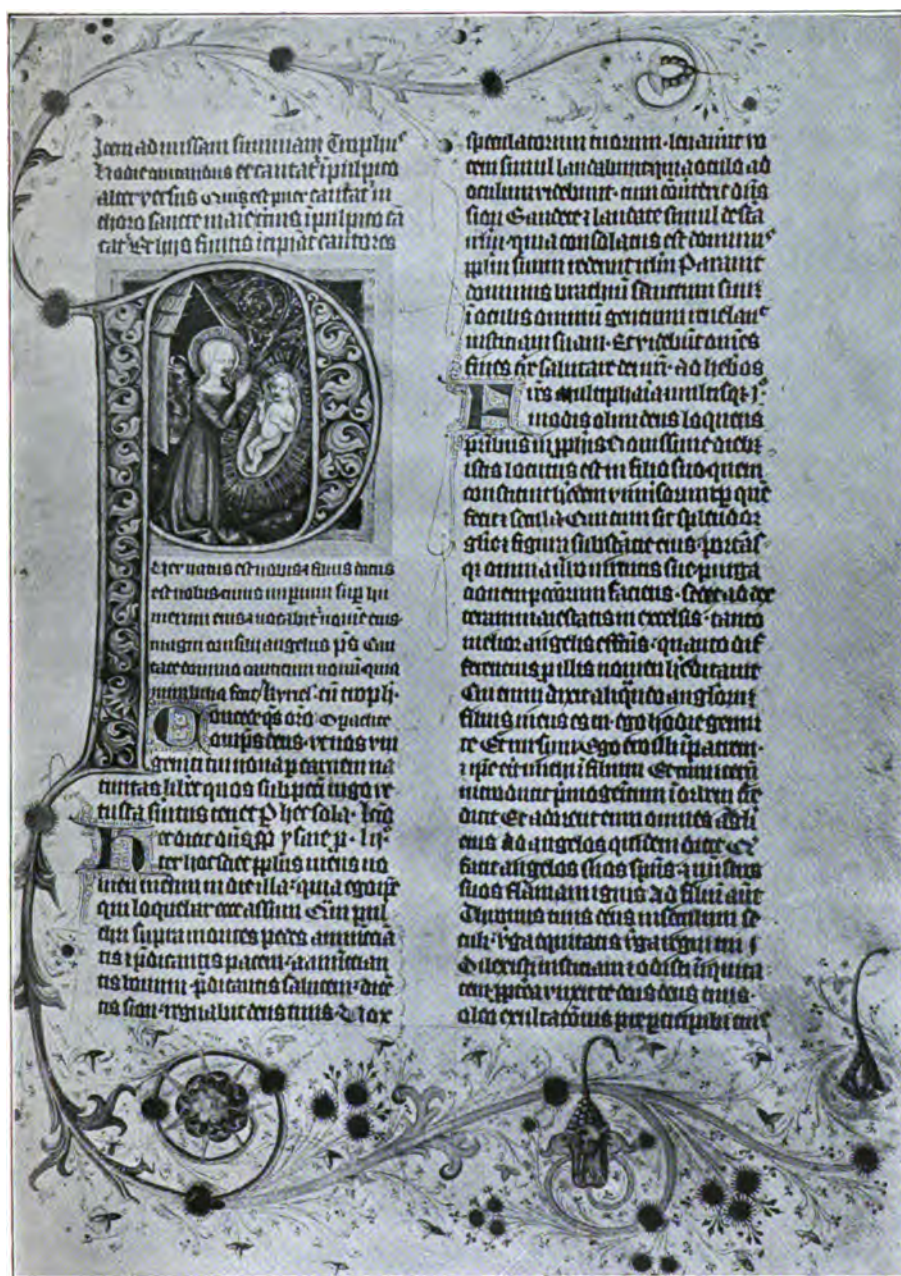 Item ad missam summam Troph9
Hodie cantandus et cantat i pulpito
alter versus Quis est puer cantat in
choro sancte marie i pulpito ca
tat Et hiis finitis icipiat cantores
P
uer natus est nobis & filius datus
est nobis cuius imperium sup hu
merum eius & vocabit nomē eius
magni consilii angelus ps Can
tate domino canticum nouū quia
mirabilia fecit kyriel cū
Concede qs
omps deus vt nos vni
geniti tui noua p carnem na
tiuitas libet quos sub pcti iugo ve
tusta seruitus tenet P
Hec dicit dns ysaie p
ter hoc sciet pplus meus no
men meum in die illa quia ego ipe
qui loquebar ecce assum Qm pul
chri supra montes pedes annuciā
tis & pdicantis pacem annuncian
tis bonum pdicantis salutem dicē
tis sion regnabit deus tuus Vox
speculatorum tuorum leuauūt vo
cem simul laudabunt quia oculo ad
oculum videbunt cum conuertit dns
sion Gaudete & laudate simul deserta
quia consolatus est dominus
pplm suum redemit irlm Parauit
dominus brachiū sanctum suum
i oculis omnium gentium
Et videbūt omnes
fines salutare dei nri ad hebreos
Frs multipharia multisqz
modis olim deus loquens
pribus in pphis Nouissime dieb
istis locutus est in filio suo quem
constituit hedem vniusorum p quē
fecit & secula Qui cum sit splendor
glie & figura substancie eius portās
qz omnia uirtutis sue purga
tionem pctorum faciens sedet ad dex
teram maiestatis in excelsis tanto
melior angelis effectus quanto dif
ferencius p illis nomen hereditauit
Cui enim dixit aliqn angelorum
filius meus es tu ego hodie genui
te Et rursum Ego ero illi i patrem
& ipe erit michi i filium Et cum iterū
introducit pmogenitum i orbem tre
dicit Et adorent eum omnes angeli
eius Ad angelos quidem dicit Qi
facit angelos suos spus & ministros
suos flāmam ignis Ad filiū aut
Thronus tuus deus in seculum se
culi vga equitatis vga regni tui
Dilexisti iusticiam & odisti iniquita
tem ppterea vnxit te deus deus tuus
oleo exultacōnis pre pticipibus tuis